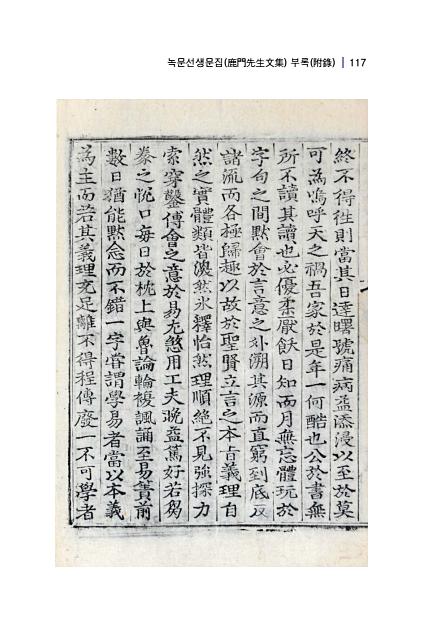 녹문선생문집(鹿門先生文集) 부록(附錄) | 117
終不得徃則當其日達曙號痛病益添浸以至於莫
可爲嗚呼天之禍吾家於是年一何酷也公於書無
所不讀其讀也必優柔厭飫日知而月無忘體玩於
字句之間默會於言意之外溯其源而直窮到底反
諸流而各極歸趣以故於聖賢立言之本旨義理自
然之實體類皆渙然氷釋怡然理順絶不見強探力
索穿鑿傅會之意於易尤煞用工夫晩益篤好若芻
豢之悅口每日於枕上與魯論輪複諷誦至易簀前
數日猶能默念而不錯一字嘗謂學易者當以本義
爲主而若其義理充足離不得程傳廢一不可學者